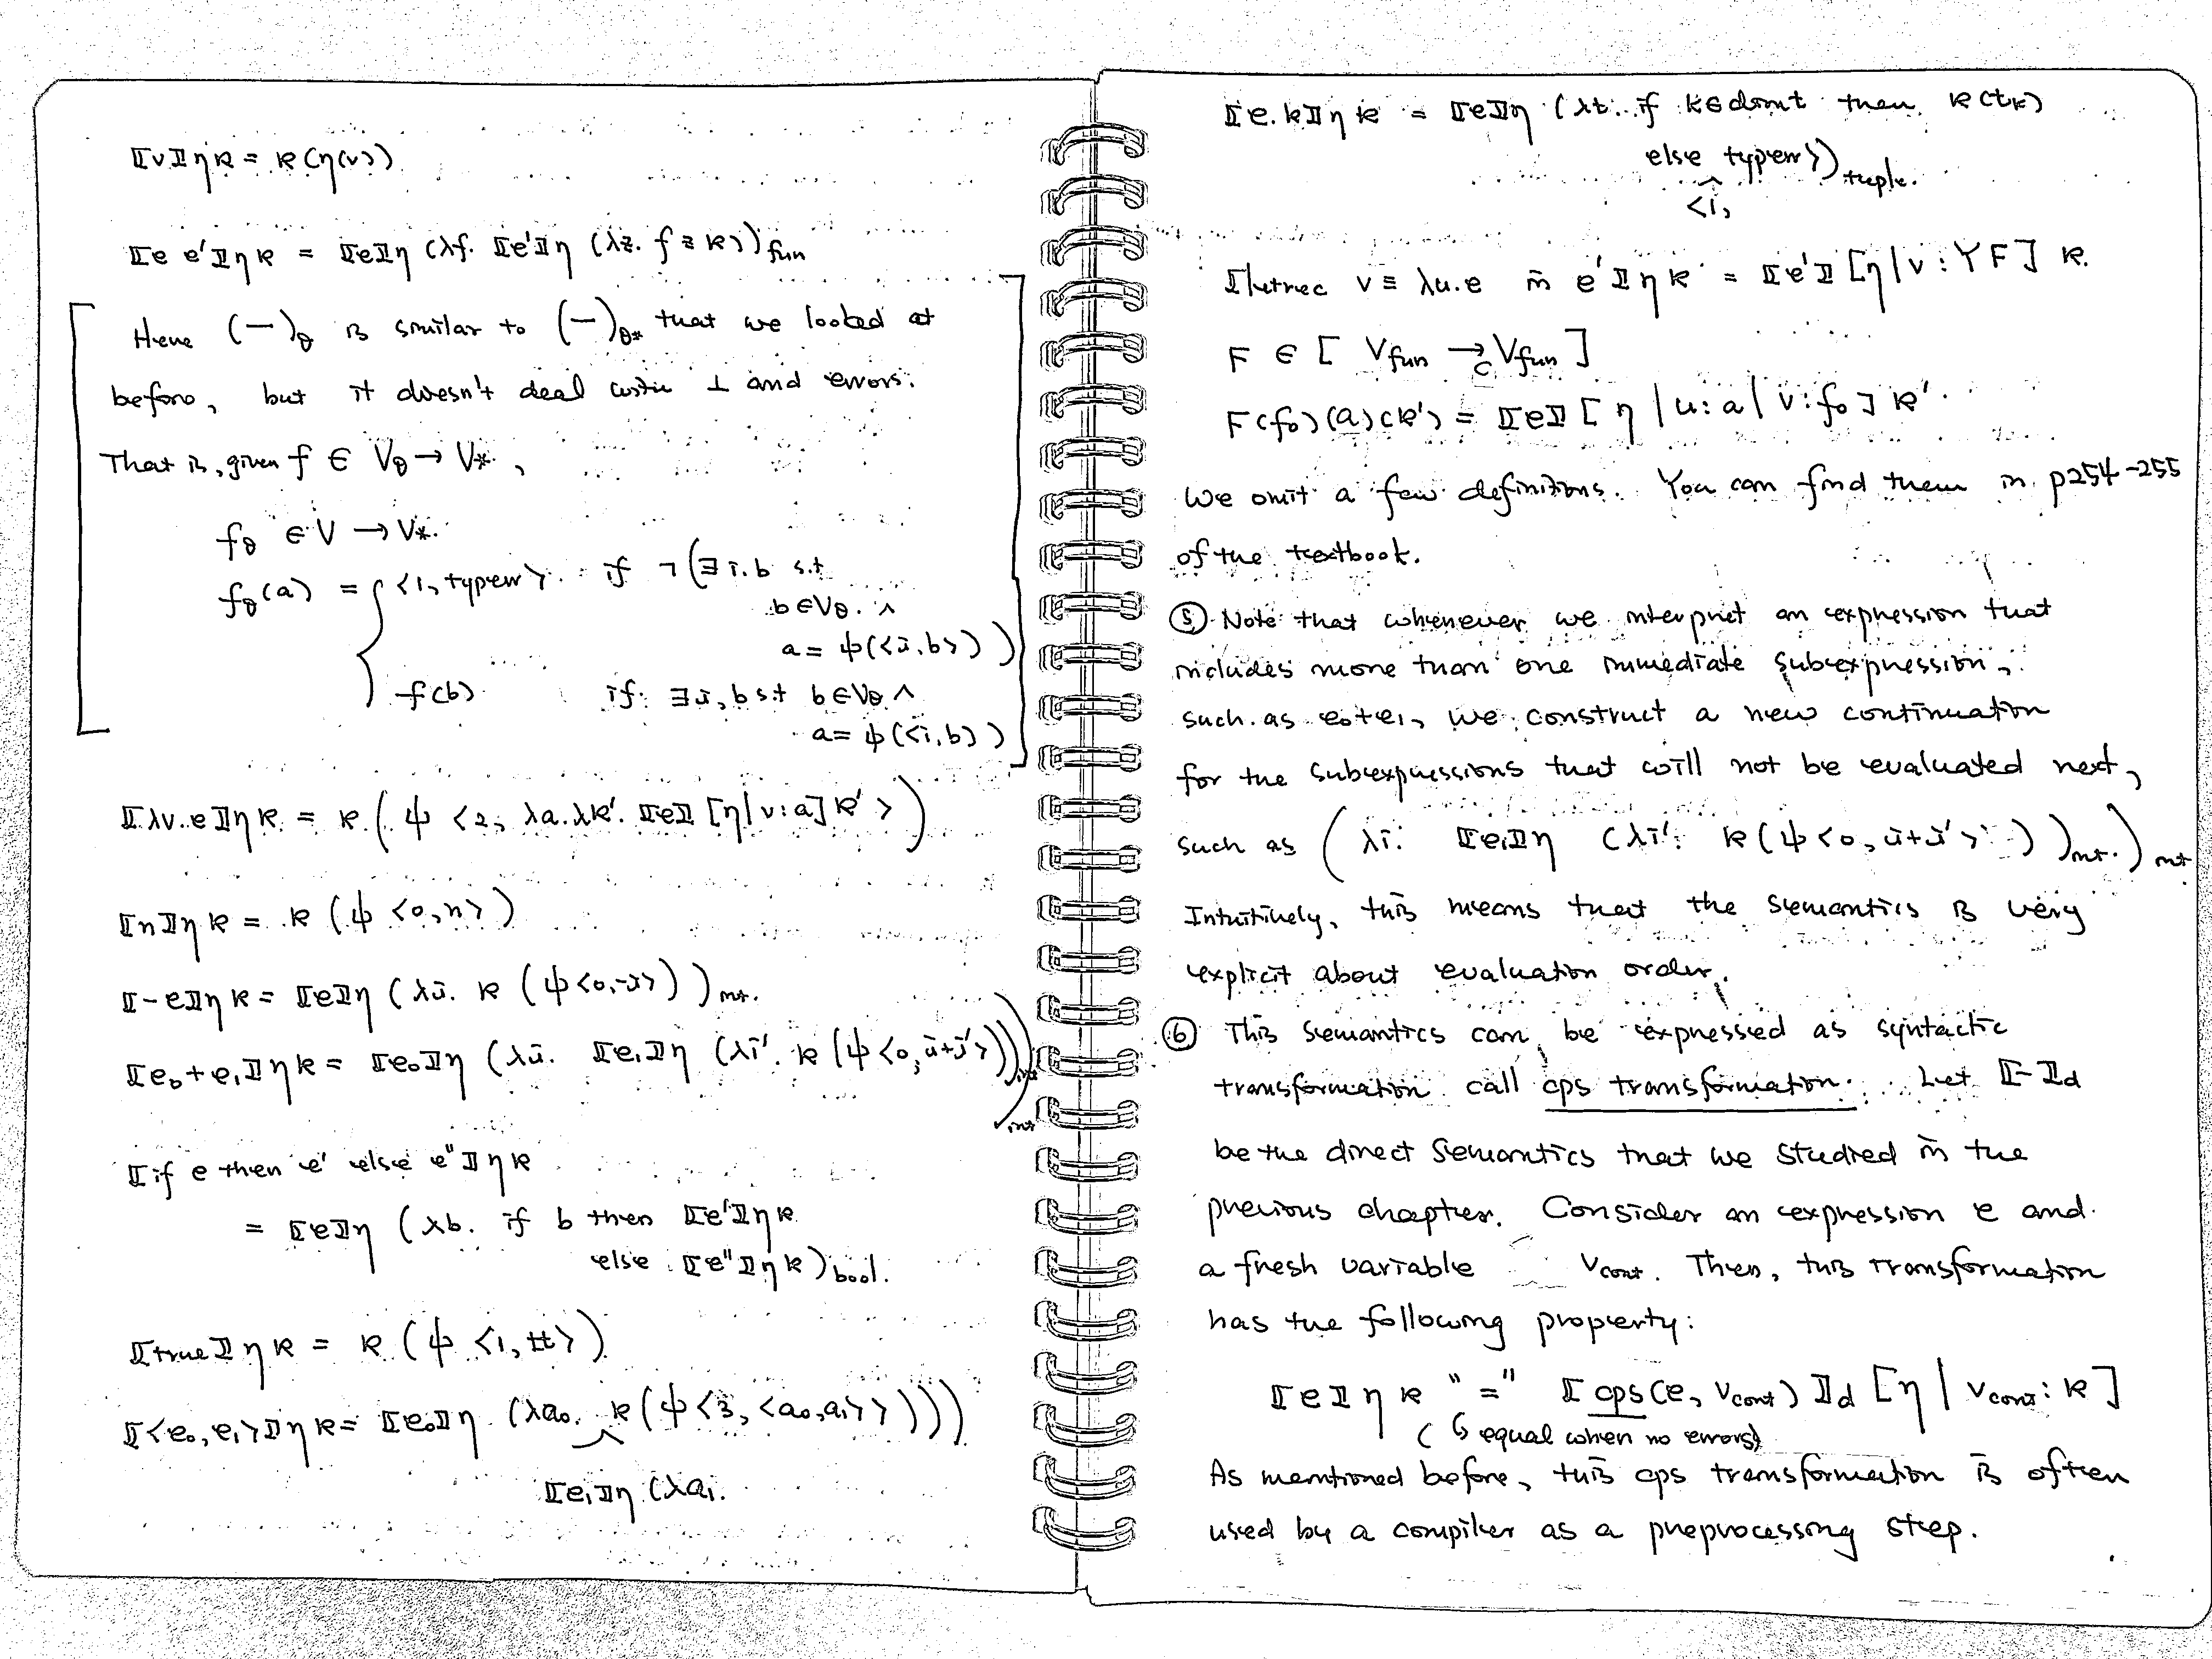 ⟦v⟧ηκ = κ(η(v))
⟦e e'⟧ηκ = ⟦e⟧η (λf. ⟦e'⟧η (λz. f z κ))_fun
Here (—)_θ is similar to (—)_θ* that we looked at
before, but it doesn't deal with ⊥ and errors.
That is, given f ∈ V_θ → V_*,
f_θ ∈ V → V_*.
f_θ(a) = { <1, typerr>. if ¬(∃i.b s.t
b∈V_θ. ∧
a = ψ(<i,b>))
f(b) if ∃i,b s.t b∈V_θ ∧
a = ψ(<i,b>)
⟦λv.e⟧ηκ = κ(ψ <2, λa.λκ'. ⟦e⟧[η|v:a]κ'>)
⟦n⟧ηκ = κ(ψ <0,n>)
⟦-e⟧ηκ = ⟦e⟧η (λi. κ(ψ<0,-i>))_int.
⟦e₀+e₁⟧ηκ = ⟦e₀⟧η (λi. ⟦e₁⟧η (λi'. κ(ψ<0, i+i'>))_int)_int
⟦if e then e' else e''⟧ηκ
= ⟦e⟧η (λb. if b then ⟦e'⟧ηκ
else ⟦e''⟧ηκ)_bool.
⟦true⟧ηκ = κ(ψ <1, tt>)
⟦<e₀,e₁>⟧ηκ = ⟦e₀⟧η (λa₀. κ(ψ<3, <a₀,a₁>>)))
⟦e₁⟧η (λa₁.
⟦e.k⟧ηκ = ⟦e⟧η (λt. if k∈dom t then κ(t_k)
else typerr>)_tuple.
<1,
⟦letrec v ≡ λu.e in e'⟧ηκ = ⟦e'⟧[η|v:YF] κ.
F ∈ [V_fun →_c V_fun]
F(f₀)(a)(κ') = ⟦e⟧[η|u:a|v:f₀] κ'.
We omit a few definitions. You can find them in p254-255
of the textbook.
⑤ Note that whenever we interpret an expression that
includes more than one immediate subexpression,
such as e₀+e₁, we construct a new continuation
for the subexpressions that will not be evaluated next,
such as (λi. ⟦e₁⟧η (λi'. κ(ψ<0, i+i'>))_int.)_int
Intuitively, this means that the semantics is very
explicit about evaluation order.
⑥ This semantics can be expressed as syntactic
transformation call cps transformation. Let ⟦-⟧_d
be the direct semantics that we studied in the
previous chapter. Consider an expression e and
a fresh variable v_cont. Then, this transformation
has the following property:
⟦e⟧ηκ "=" ⟦cps(e, v_cont)⟧_d [η|v_cont:κ]
(↳ equal when no errors)
As mentioned before, this cps transformation is often
used by a compiler as a preprocessing step.